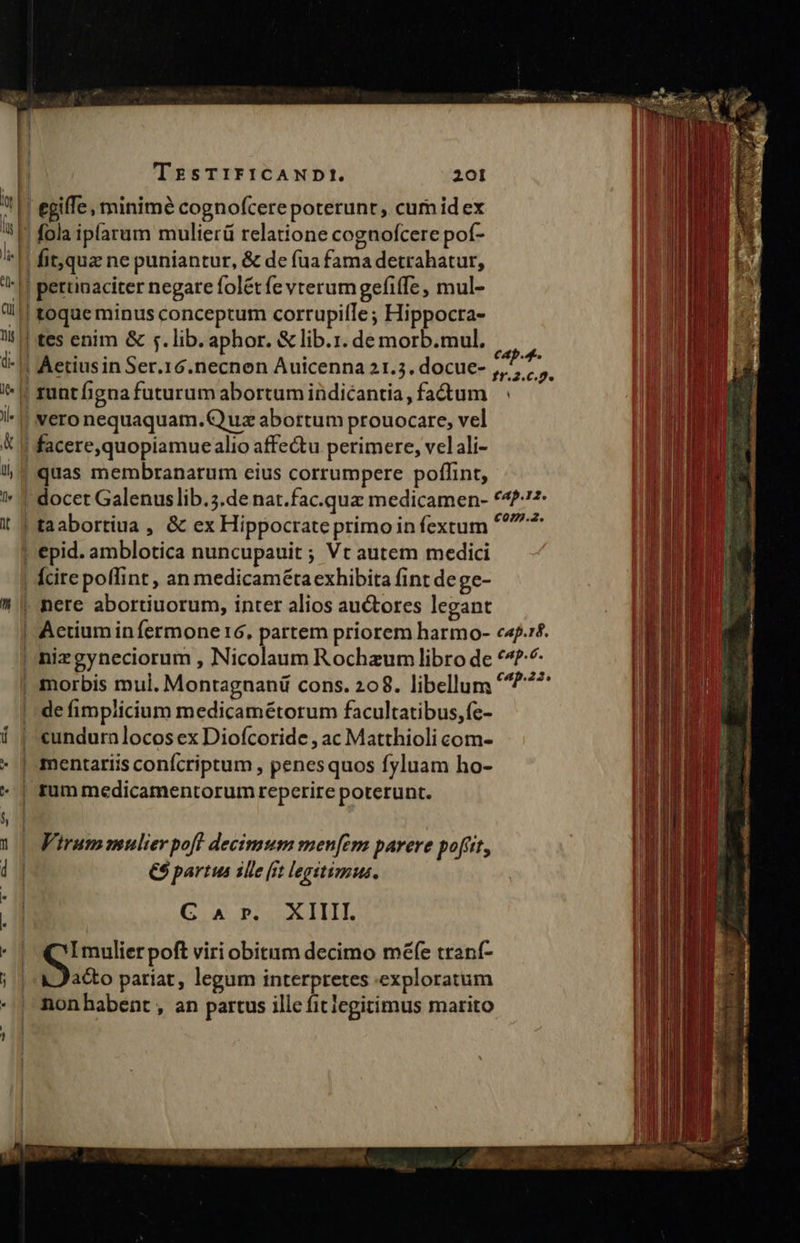 TESTIFICANDI. 201
egiſſe, minimè cognoſcere poterunt, cum id ex
ſola ipſarum mulierũ relatione cognoſcere poſ-
ſit, quæ ne puniantur, & de ſua fama detrahatur,
pertinaciter negare ſolẽt ſe vterum geſiſſe, mul-
toque minus conceptum corrupiſſe; Hippocra-
tes enim & 5. lib. aphor. & lib. 1. de morb. mul.
Aetius in Ser. 16. necnon Auicenna 21. 3. docue- cap. 4. tr. 2. c. 9.
runt ſigna futurum abortum indicantia, factum
vero nequaquam. Quæ abortum prouocare, vel
facere, quopiamue alio affectu perimere, vel ali-
quas membranarum eius corrumpere poſſint,
docet Galenus lib. 3. de nat. fac. quæ medicamen- cap. 12.
ta abortiua, & ex Hippocrate primo in ſextum com. 2.
epid. amblotica nuncupauit; Vt autem medici
ſcire poſſint, an medicamẽta exhibita ſint de ge-
nere abortiuorum, inter alios auctores legant
Aetium in ſermone 16. partem priorem harmo- cap. 18.
niæ gyneciorum, Nicolaum Rochæum libro de cap. 6.
morbis mul. Montagnanũ cons. 208. libellum cap. 22.
de ſimplicium medicamẽtorum facultatibus, ſe-
cundum locos ex Dioſcoride, ac Matthioli com-
mentariis conſcriptum, penes quos ſyluam ho-
rum medicamentorum reperire poterunt.
Virum mulier poſt decimum menſem parere poſsit,
& partus ille ſit legitimus.
CAP. XIIII.
SI mulier poſt viri obitum decimo mẽſe tranſ-
acto pariat, legum interpretes exploratum
non habent, an partus ille ſit legitimus marito